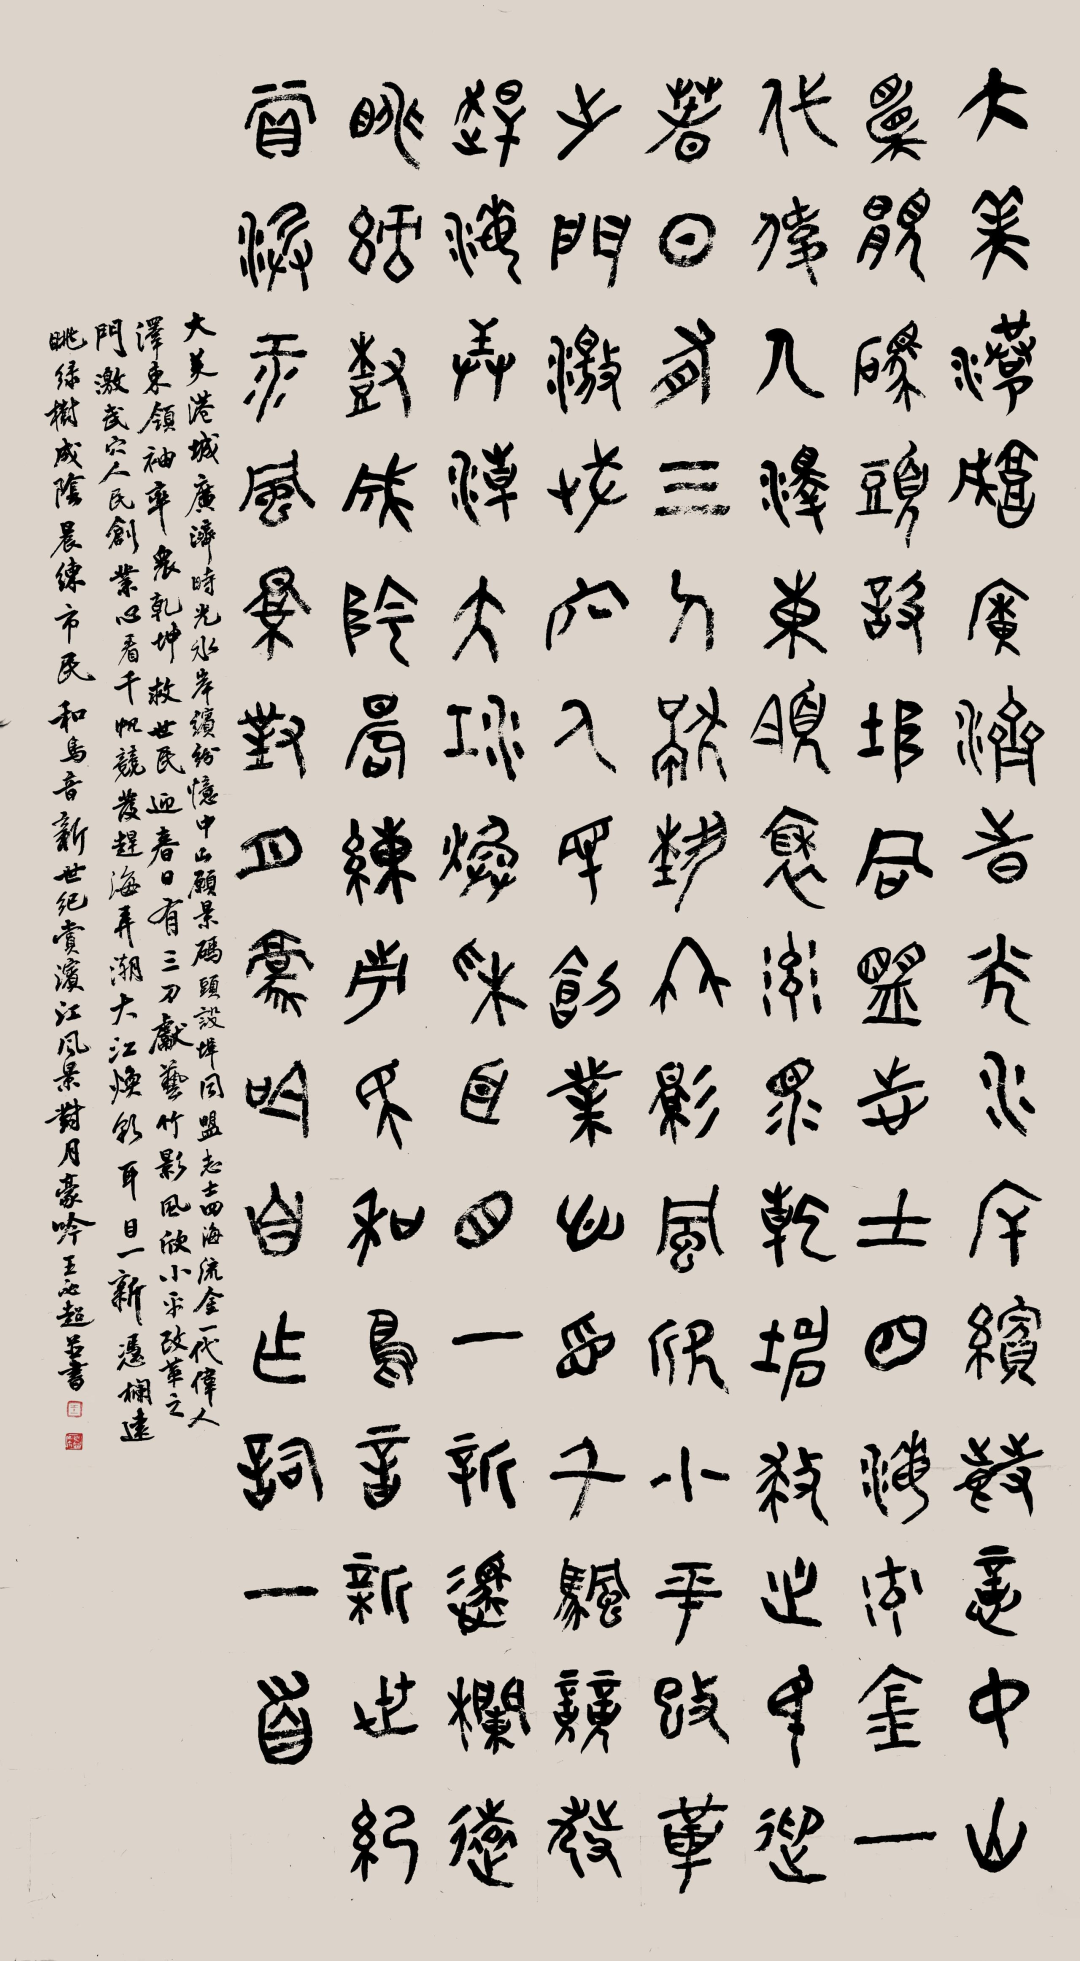 大美港城廣濟時光水岸繽紛憶中山
願景碼頭設埠同盟志士四海流金一
代偉人澤東領袖率眾乾坤救世民迎
春日有三刀獻藝竹影風欣小平改革
之門激武穴人民創業心看千帆競發
趕海弄潮大江煥彩耳目一新憑欄遠
眺綠樹成陰晨練市民和鳥音新世紀
賞濱江風景對月豪吟自作詞一首
大美港城廣濟時光水岸繽紛憶中山願景碼頭設埠同盟志士四海流金一代偉人
澤東領袖率眾乾坤救世民迎春日有三刀獻藝竹影風欣小平改革之
門激武穴人民創業心看千帆競發趕海弄潮大江煥彩耳目一新憑欄遠
眺綠樹成陰晨練市民和鳥音新世紀賞濱江風景對月豪吟王必超并書